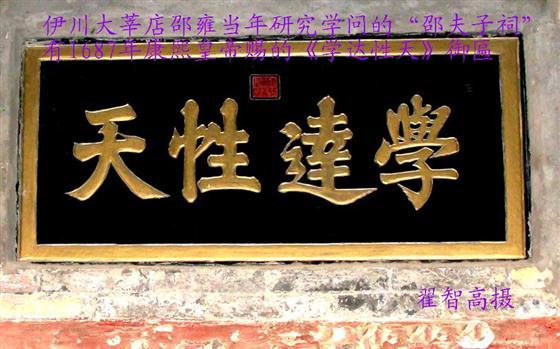 伊川大莘店邵雍当年研究学问的“邵夫子祠”
有1687年康熙皇帝赐的《学达性天》御匾
學達性天
翟智高摄